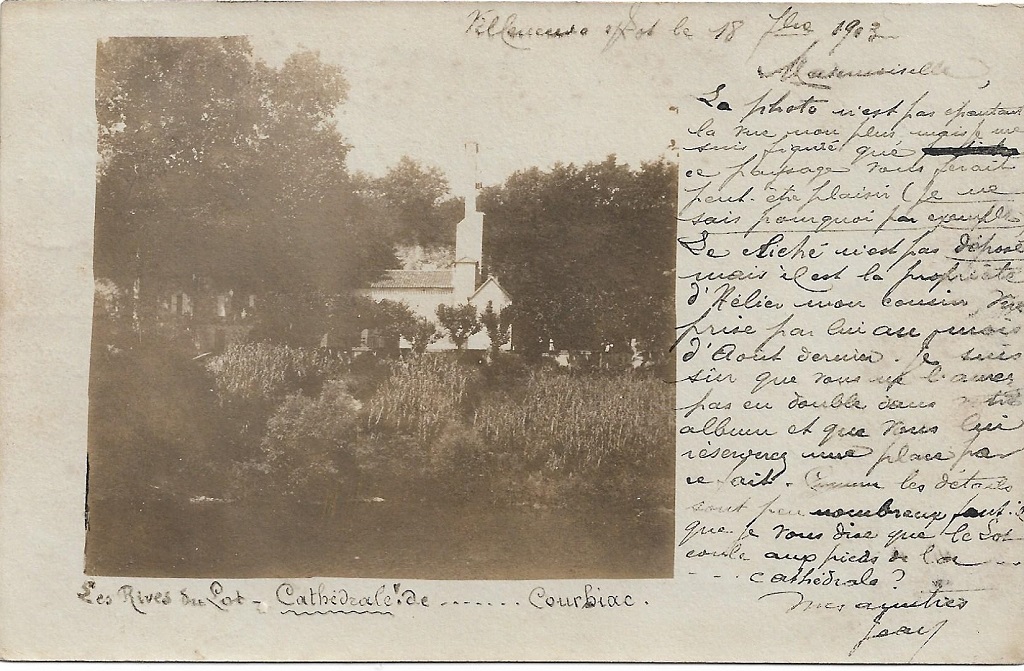 Villeneuve s/Lot le 18 7bre 1903
Mademoiselle,
La photo n'est pas épatante
la vue non plus mais je me
suis figuré que
ce paysage vous ferait
peut-être plaisir (je ne
sais pourquoi par exemple)
Le cliché n'est pas déposé
mais il est la propriété
d'Hélier mon cousin. Vue
prise par lui au mois
d'Aout dernier. Je suis
sûr que vous ne l'avez
pas en double dans votre
album et que vous lui
réserverez une place par
ce fait. Comme les détails
sont peu nombreux faut-il
que je vous dise que le Lot
coule aux pieds de la ...
.... cathédrale ?
Mes amitiés
Jean
Les Rives du Lot - "Cathédrale" de ....... Courbiac.